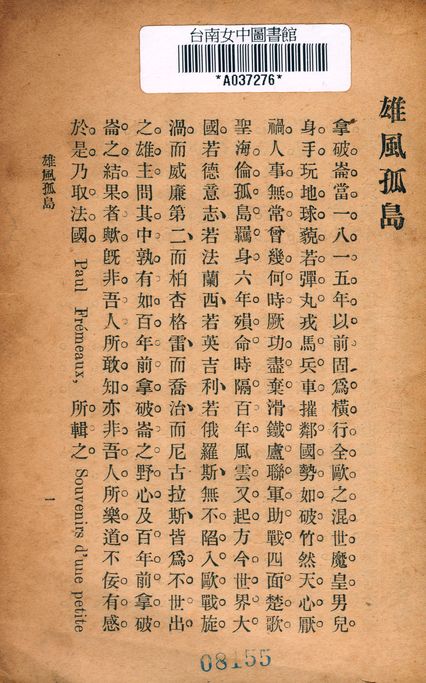 台南女中圖書館
*A037276*
雄風孤島
拿破崙當一八一五年以前固爲橫行全歐之混世魔皇男兒
身手玩地球藐若彈丸戎馬兵車摧鄰國勢如破竹然天心厭
禍人事無常曾幾何時厥功盡棄滑鐵盧聯軍助戰四面楚歌
聖海倫孤島羈身六年殞命時隔百年風雲又起方今世界大
國若德意志、若法蘭西、若英吉利、若俄羅斯、無不陷入歐戰旋
渦而威廉第二、而柏杏格雷、而喬治、而尼古拉斯、皆爲不世出
之雄主問其中孰有如百年前拿破崙之野心及百年前拿破
崙之結果者歟旣非吾人所敢知亦非吾人所樂道不佞有感
於是乃取法國 Paul Frémeaux, 所輯之 Souvenirs d'une petite
雄風孤島
1
08155